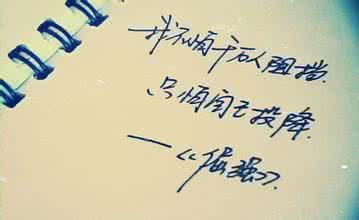 我不怕千万人阻挡
只怕自己投降.
—《倔强》.